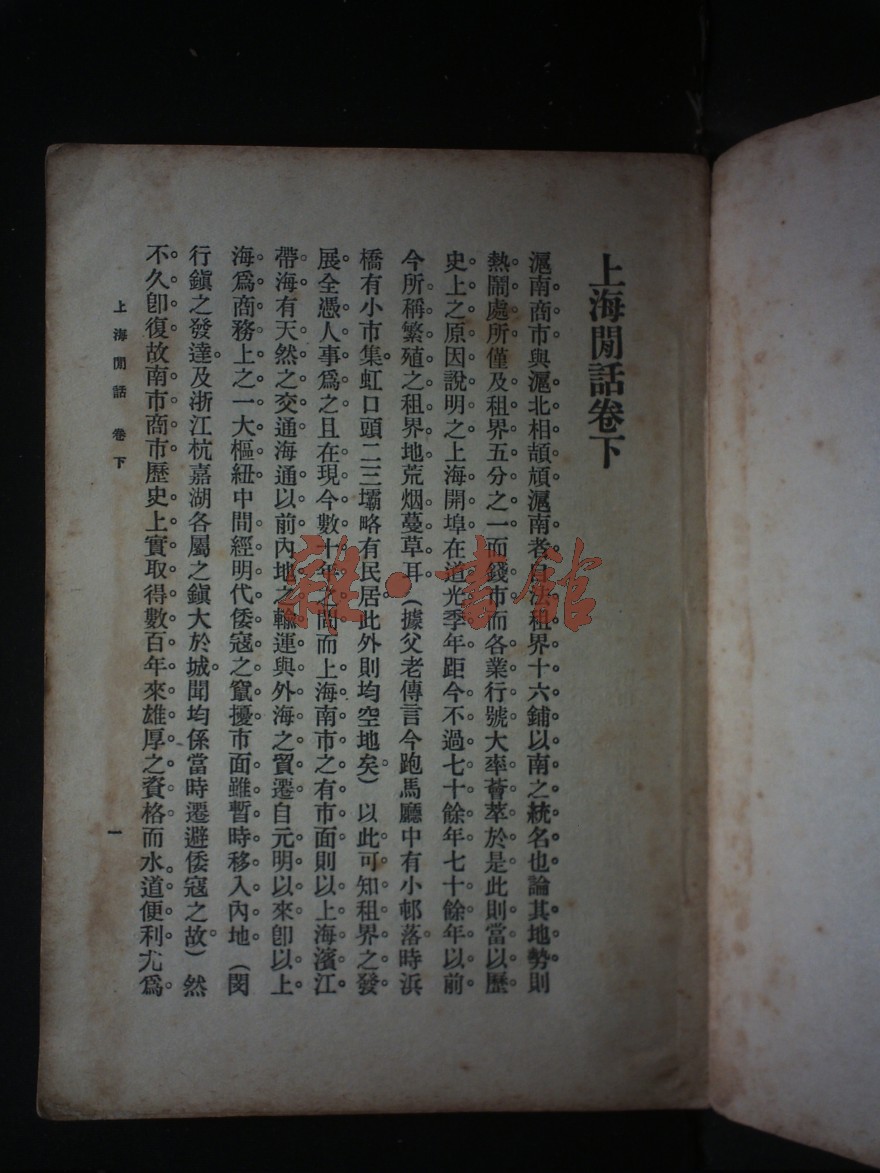 上海閒話卷下
滬南商市與滬北相頡頏滬南者自法租界十六鋪以南之統名也論其地勢則
熱鬧處所僅及租界五分之一而錢市而各業行號大率薈萃於是此則當以歷
史上之原因說明之上海開埠在道光季年距今不過七十餘年七十餘年以前
今所稱繁殖之租界地荒烟蔓草耳。(據父老傳言今跑馬廳中有小邨落時浜
橋有小市集虹口頭二三壩略有民居此外則均空地矣)以此可知租界之發
展全憑人事爲之且在現今數十年之間而上海南市之有市面則以上海濱江
帶海有天然之交通海通以前內地之輸運與外海之貿遷自元明以來卽以上
海爲商務上之一大樞紐中間經明代倭寇之竄擾市面雖暫時移入內地(閔
行鎭之發達及浙江杭嘉湖各屬之鎭大於城聞均係當時遷避倭寇之故)然
不久卽復故南市商市歷史上實取得數百年來雄厚之資格而水道便利尤爲
上海閒話 卷下
一
雜·書館